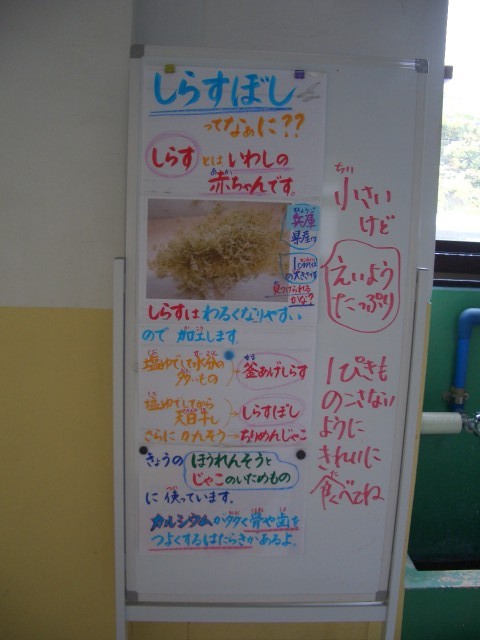 しらすぼし
ってなぁに??
しらすとはいわしの
赤ちゃんです。
兵庫
県産の
しらすは わるくなりやすい
ので 加工します。
塩ゆでして水分の
多いもの
釜あげしらす
塩ゆでしてから
天日干し
しらすぼし
さらに かんそう→ちりめんじゃこ
きょうの ほうれんそうと
じゃこのいためもの
に 使っています。
カルシウムが多く骨や歯を
つよくするはたらきがあるよ。
小さい
けど
えいよう
たっぷり
1ぴきも
のこさない
ように
きれいに
食べてね